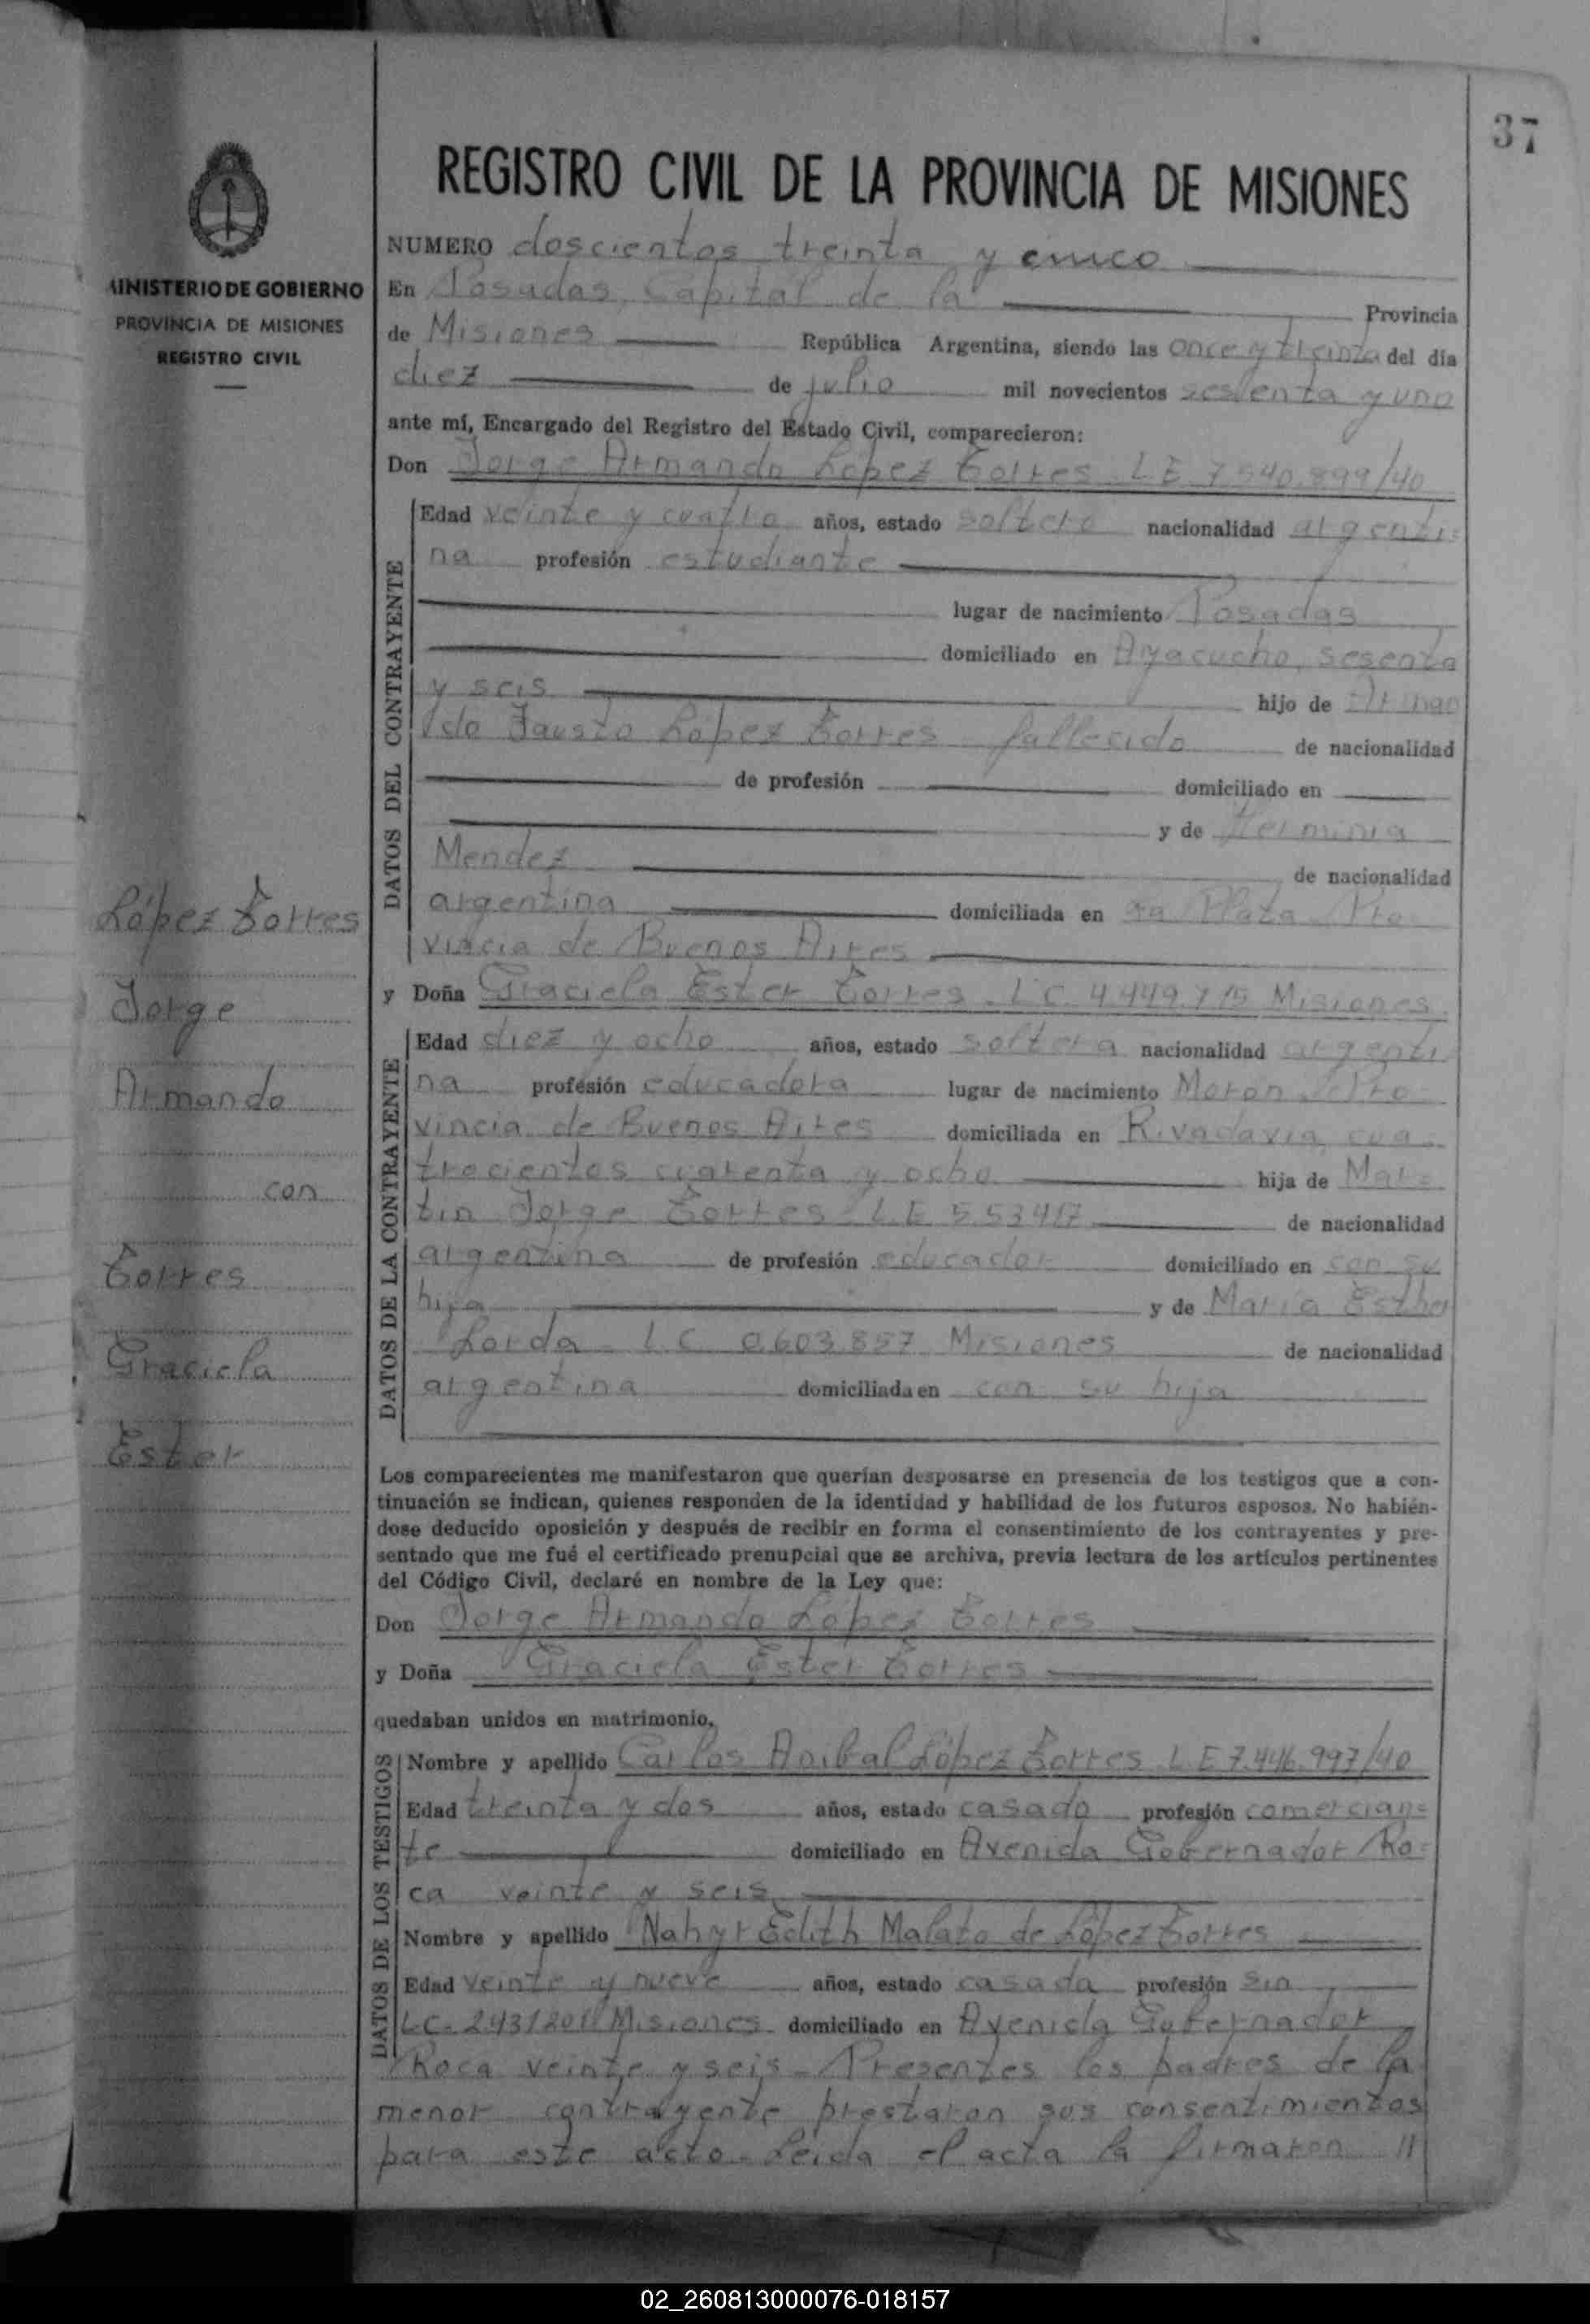 37
REGISTRO CIVIL DE LA PROVINCIA DE MISIONES
MINISTERIO DE GOBIERNO
PROVINCIA DE MISIONES
REGISTRO CIVIL
NUMERO doscientos treinta y cinco
En Posadas, Capital de la Provincia
de Misiones República Argentina, siendo las once y treinta del día
diez de julio mil novecientos sesenta y uno
ante mí, Encargado del Registro del Estado Civil, comparecieron:
Don Jorge Armando López Torres LE 7.540.899/40
DATOS DEL CONTRAYENTE
Edad veinte y cuatro años, estado soltero nacionalidad argenti=
na profesión estudiante
lugar de nacimiento Posadas
domiciliado en Ayacucho, sesenta
y seis hijo de Arman
do Fausto López Torres fallecido de nacionalidad
de profesión domiciliado en
y de Herminia
Mendez de nacionalidad
argentina domiciliada en La Plata Pro
vincia de Buenos Aires
y Doña Graciela Ester Torres LC 4.449.715 Misiones
DATOS DE LA CONTRAYENTE
Edad diez y ocho años, estado soltera nacionalidad argenti
na profesión educadora lugar de nacimiento Moron Pro
vincia de Buenos Aires domiciliada en Rivadavia cua
trocientos cuarenta y ocho hija de Mar=
tin Jorge Torres L.E 553417 de nacionalidad
argentina de profesión educador domiciliado en con su
hija y de María Esther
Lorda L.C 0.603.857 Misiones de nacionalidad
argentina domiciliada en con su hija
López Torres
Jorge
Armando
con
Torres
Graciela
Ester
Los comparecientes me manifestaron que querían desposarse en presencia de los testigos que a con-
tinuación se indican, quienes responden de la identidad y habilidad de los futuros esposos. No habién-
dose deducido oposición y después de recibir en forma el consentimiento de los contrayentes y pre-
sentado que me fué el certificado prenupcial que se archiva, previa lectura de los artículos pertinentes
del Código Civil, declaré en nombre de la Ley que:
Don Jorge Armando López Torres
y Doña Graciela Ester Torres
quedaban unidos en matrimonio.
DATOS DE LOS TESTIGOS
Nombre y apellido Carlos Anibal López Torres LE 7.446.997/40
Edad treinta y dos años, estado casado profesión comercian=
te domiciliado en Avenida Gobernador Ro=
ca veinte y seis
Nombre y apellido Nahyr Edith Malato de López Torres
Edad veinte y nueve años, estado casada profesión sin
LC. Misiones domiciliado en Avenida Gobernador
Roca veinte y seis - Presentes los padres de la
menor contrayente prestaron sus consentimientos
para este acto. Leida el acta la firmaron //
02_260813000076-018157